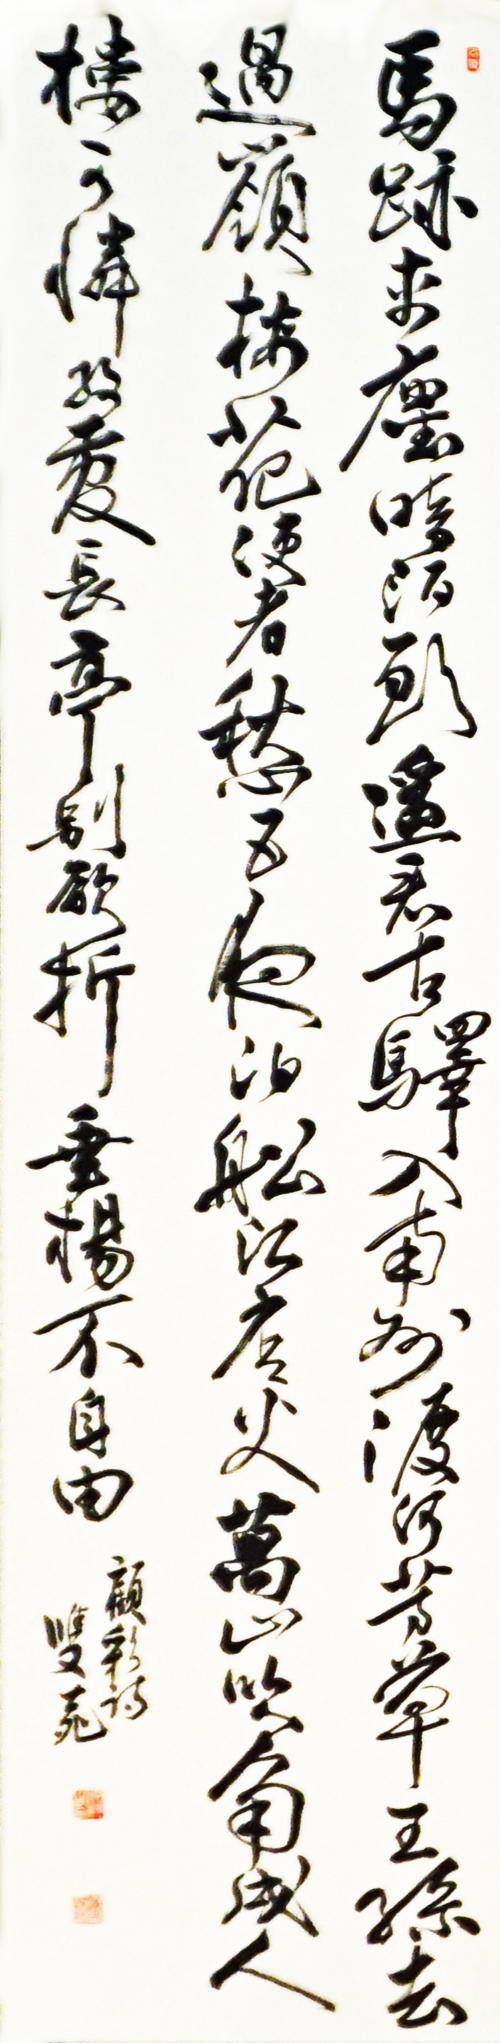 馬跡車塵暗陌頭遥看古驛入南州渡河芳草王孫去
過嶺梅花使者愁五夜泊船江店火萬山吹角戍人
樓可憐愛長亭別欲折垂楊不自由
顧彩詩
雙苑